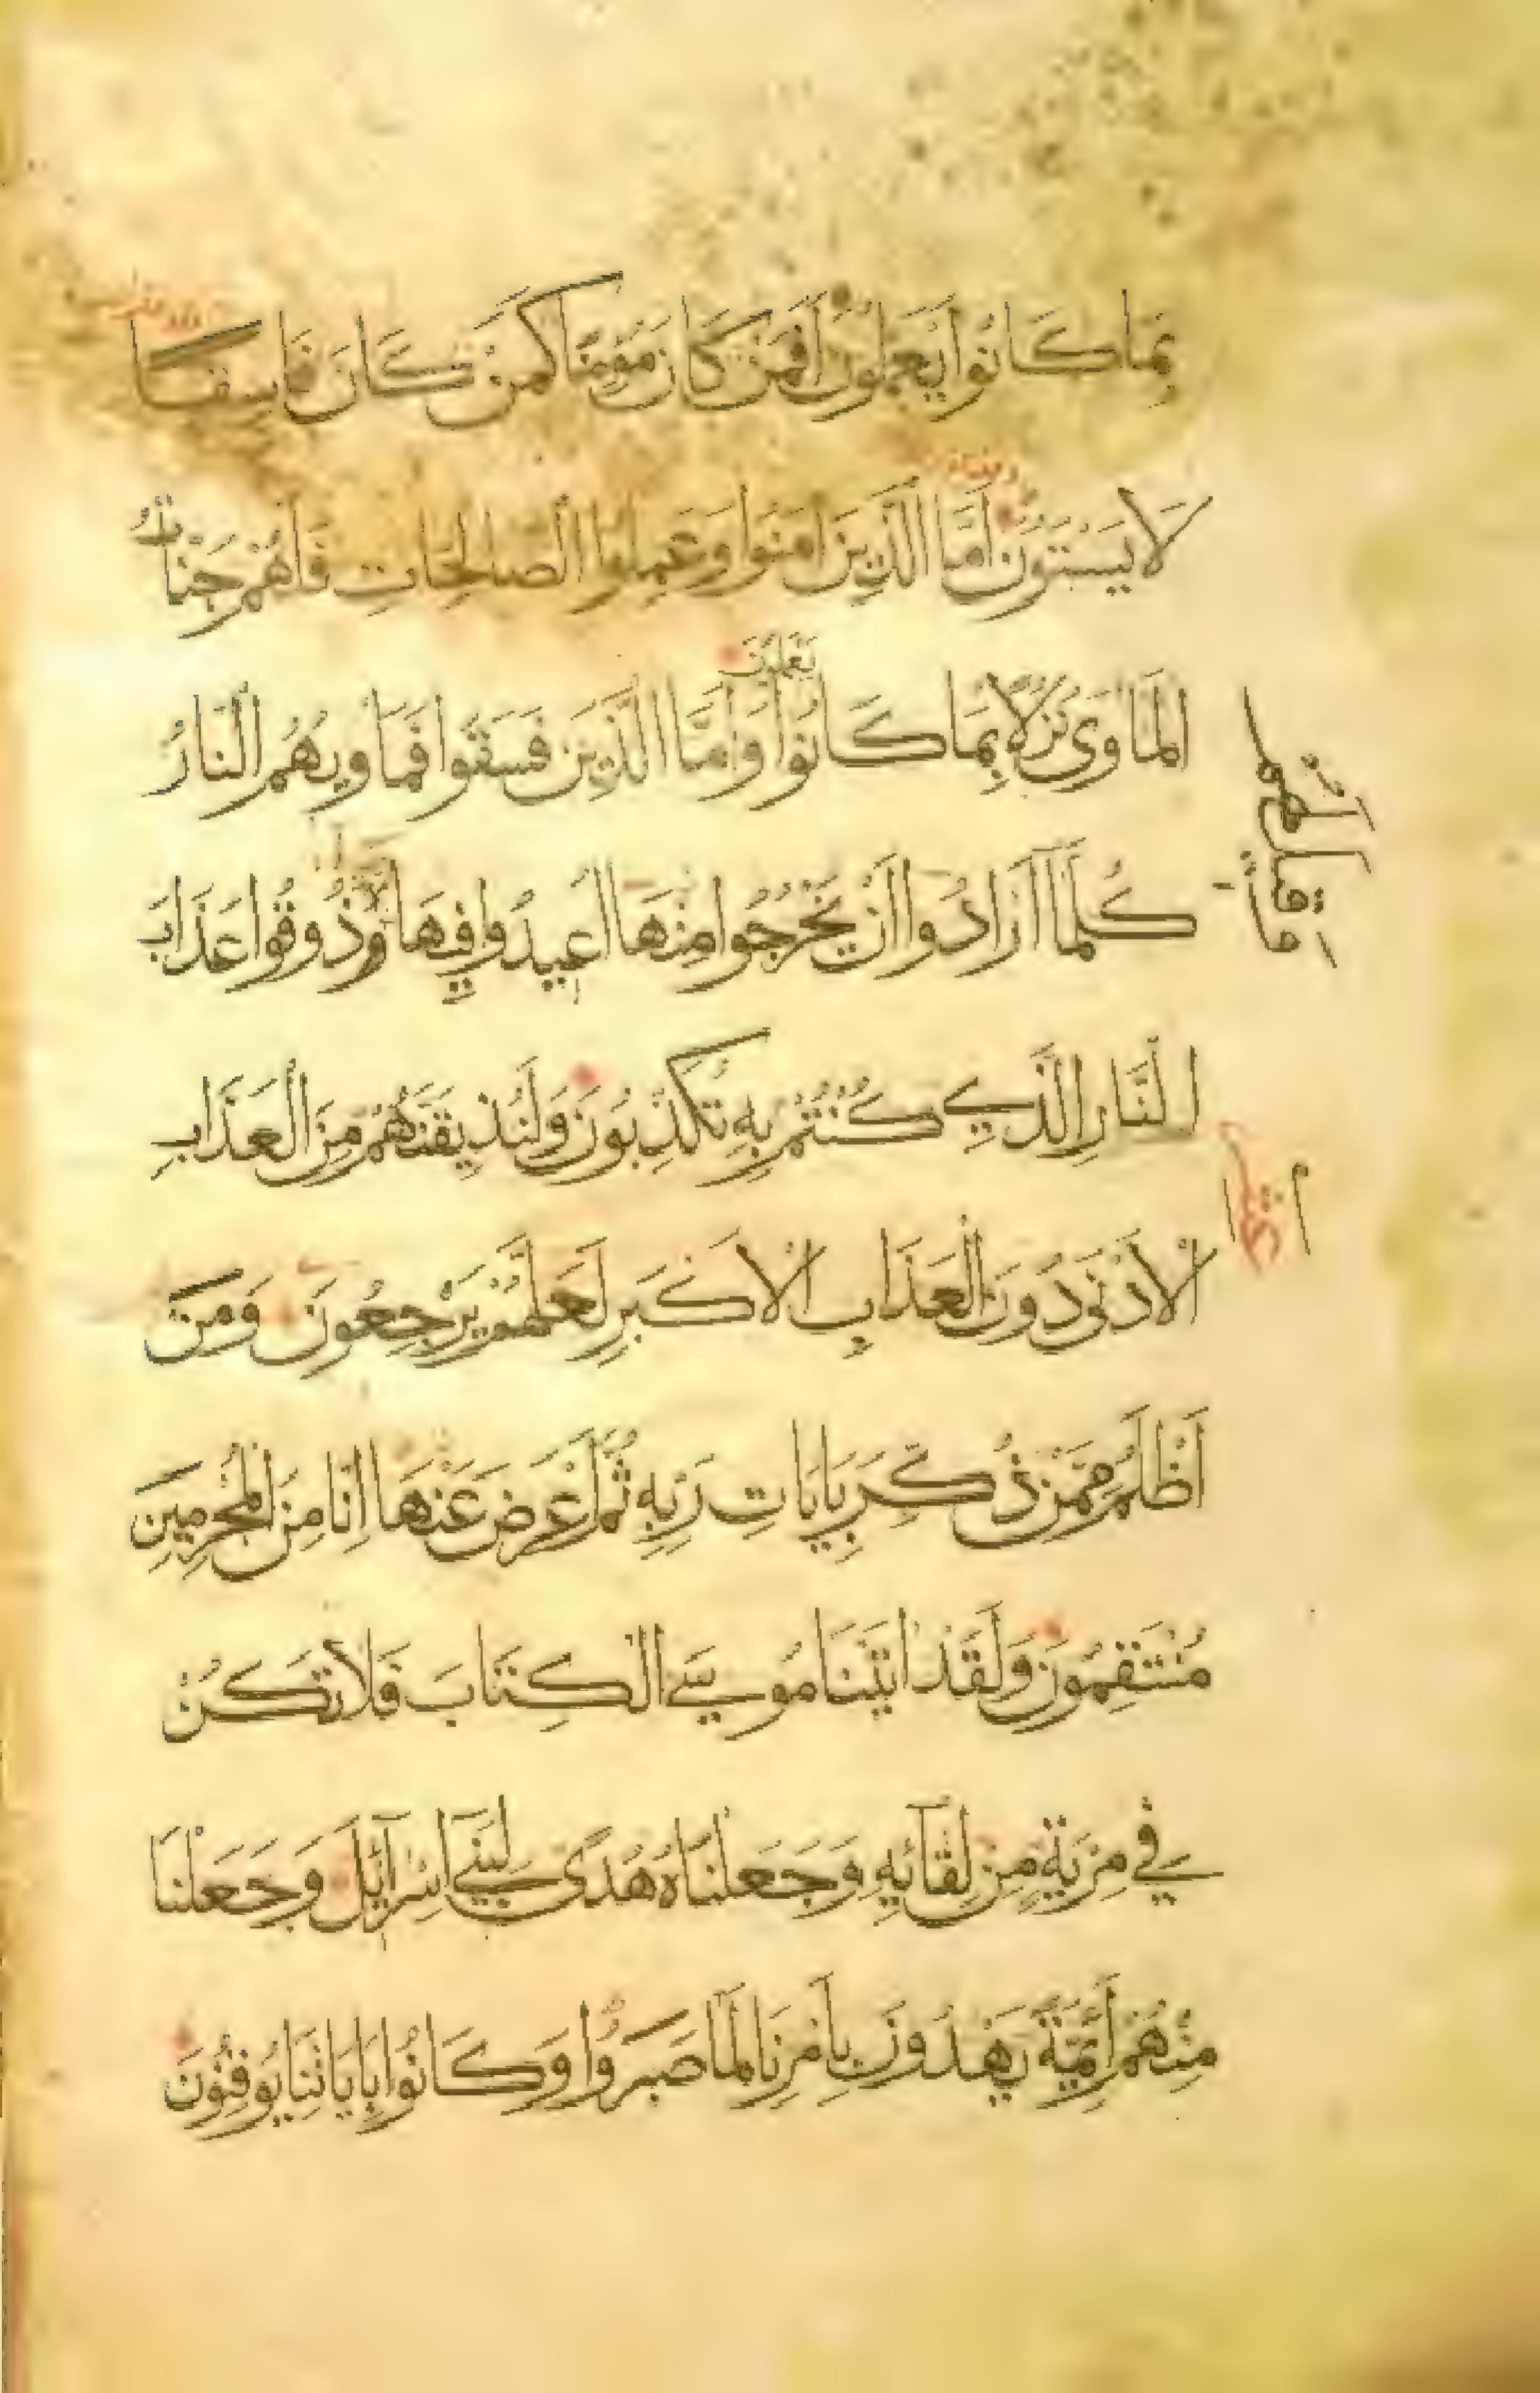 بِمَا كَانُوا يَعْمَلُونَ أَفَمَنْ كَانَ مُؤْمِنًا كَمَنْ كَانَ فَاسِقًا
لَا يَسْتَوُونَ أَمَّا الَّذِينَ آمَنُوا وَعَمِلُوا الصَّالِحَاتِ فَلَهُمْ جَنَّاتُ
يَعْمَلُونَ
الْمَأْوَى نُزُلًا بِمَا كَانُوا وَأَمَّا الَّذِينَ فَسَقُوا فَمَأْوَيهُمُ النَّارُ
كُلَّمَا أَرَادُوا أَنْ يَخْرُجُوا مِنْهَا أُعِيدُوا فِيهَا وَذُوقُوا عَذَابَ
وقيل لهم
النَّارِ الَّذِي كُنْتُمْ بِهِ تُكَذِّبُونَ وَلَنُذِيقَنَّهُمْ مِنَ الْعَذَابِ
الْأَدْنَى دُونَ الْعَذَابِ الْأَكْبَرِ لَعَلَّهُمْ يَرْجِعُونَ وَمَنْ
أَظْلَمُ مِمَّنْ ذُكِّرَ بِآيَاتِ رَبِّهِ ثُمَّ أَعْرَضَ عَنْهَا إِنَّا مِنَ الْمُجْرِمِينَ
مُنْتَقِمُونَ وَلَقَدْ آتَيْنَا مُوسَى الْكِتَابَ فَلَا تَكُنْ
فِي مِرْيَةٍ مِنْ لِقَائِهِ وَجَعَلْنَاهُ هُدًى لِبَنِي إِسْرَائِيلَ وَجَعَلْنَا
مِنْهُمْ أَئِمَّةً يَهْدُونَ بِأَمْرِنَا لَمَّا صَبَرُوا وَكَانُوا بِآيَاتِنَا يُوقِنُونَ